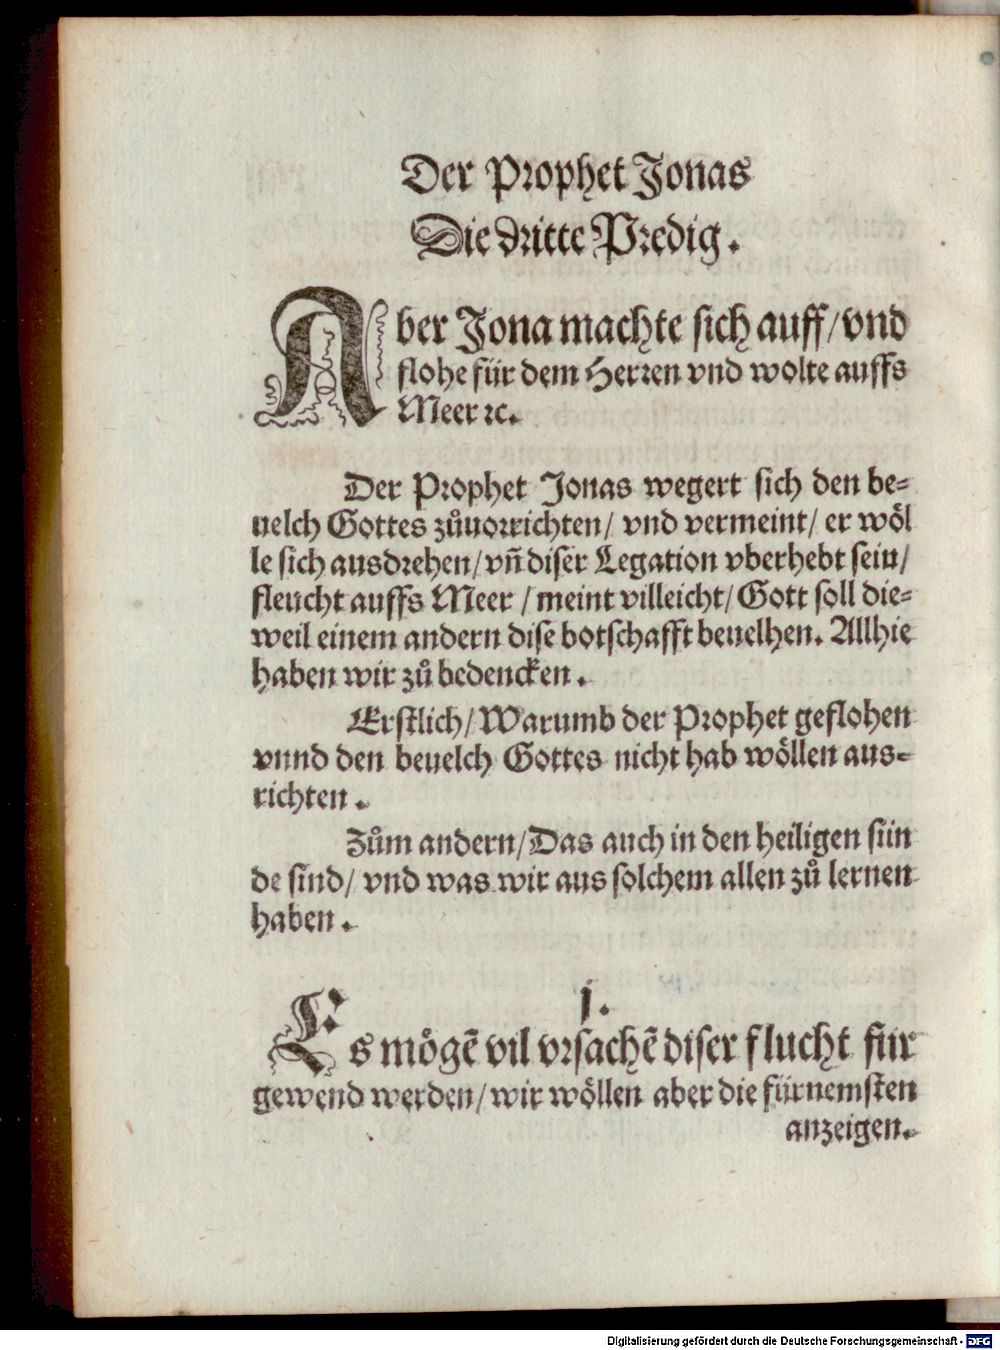 Der Prophet Jonas
Die dritte Predig.
Aber Jona machte sich auff/ vnd
flohe für dem Herren vnd wolte auffs
Meer ꝛc.
Der Prophet Jonas wegert sich den be⸗
uelch Gottes zůuorrichten/ vnd vermeint/ er wöl
le sich ausdrehen/ vñ diser Legation vberhebt sein/
fleucht auffs Meer / meint villeicht/ Gott soll die⸗
weil einem andern dise botschafft beuelhen. Allhie
haben wir zů bedencken.
Erstlich/ Warumb der Prophet geflohen
vnnd den beuelch Gottes nicht hab wöllen aus⸗
richten.
Zům andern/ Das auch in den heiligen sün
de sind/ vnd was wir aus solchem allen zů lernen
haben.
j.
Es mögē vil vrsachē diser flucht für
gewend werden/ wir wöllen aber die fürnemsten
anzeigen.
Digitalisierung gefördert durch die Deutsche Forschungsgemeinschaft - DFG